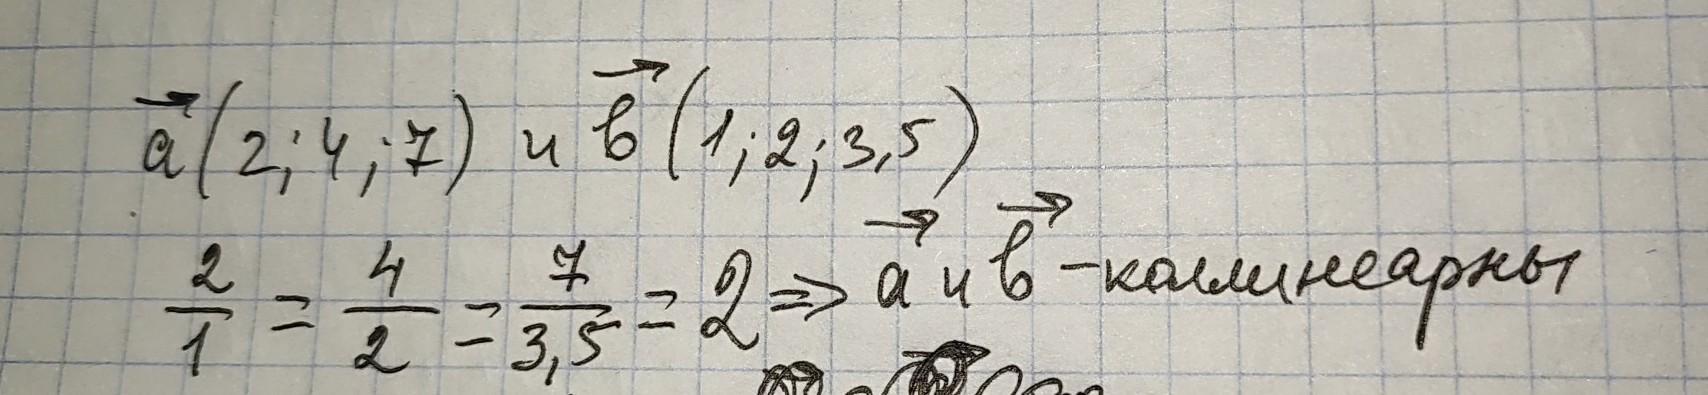 a⃗ (2; 4; 7) и b⃗ (1; 2; 3,5)
2/1 = 4/2 = 7/3,5 = 2 => a⃗ и b⃗ - коллинеарны